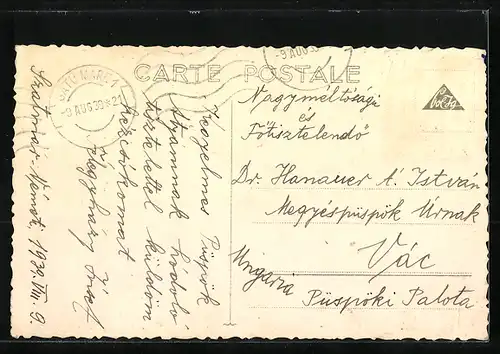 SATU MARE 1
-9 AUG 39*21
-9 AUG 39
CARTE POSTALE
Szatmár-Németi, 1939. VIII. 9.
Kegyelmes Püspök
Atyámnak hódoló
tisztelettel küldöm
kézcsókomat
József
Nagyméltóságú
és
Főtisztelendő
Dr. Hanauer Á. István
Megyéspüspök Úrnak
Vác
Ungaria
Püspöki Palota